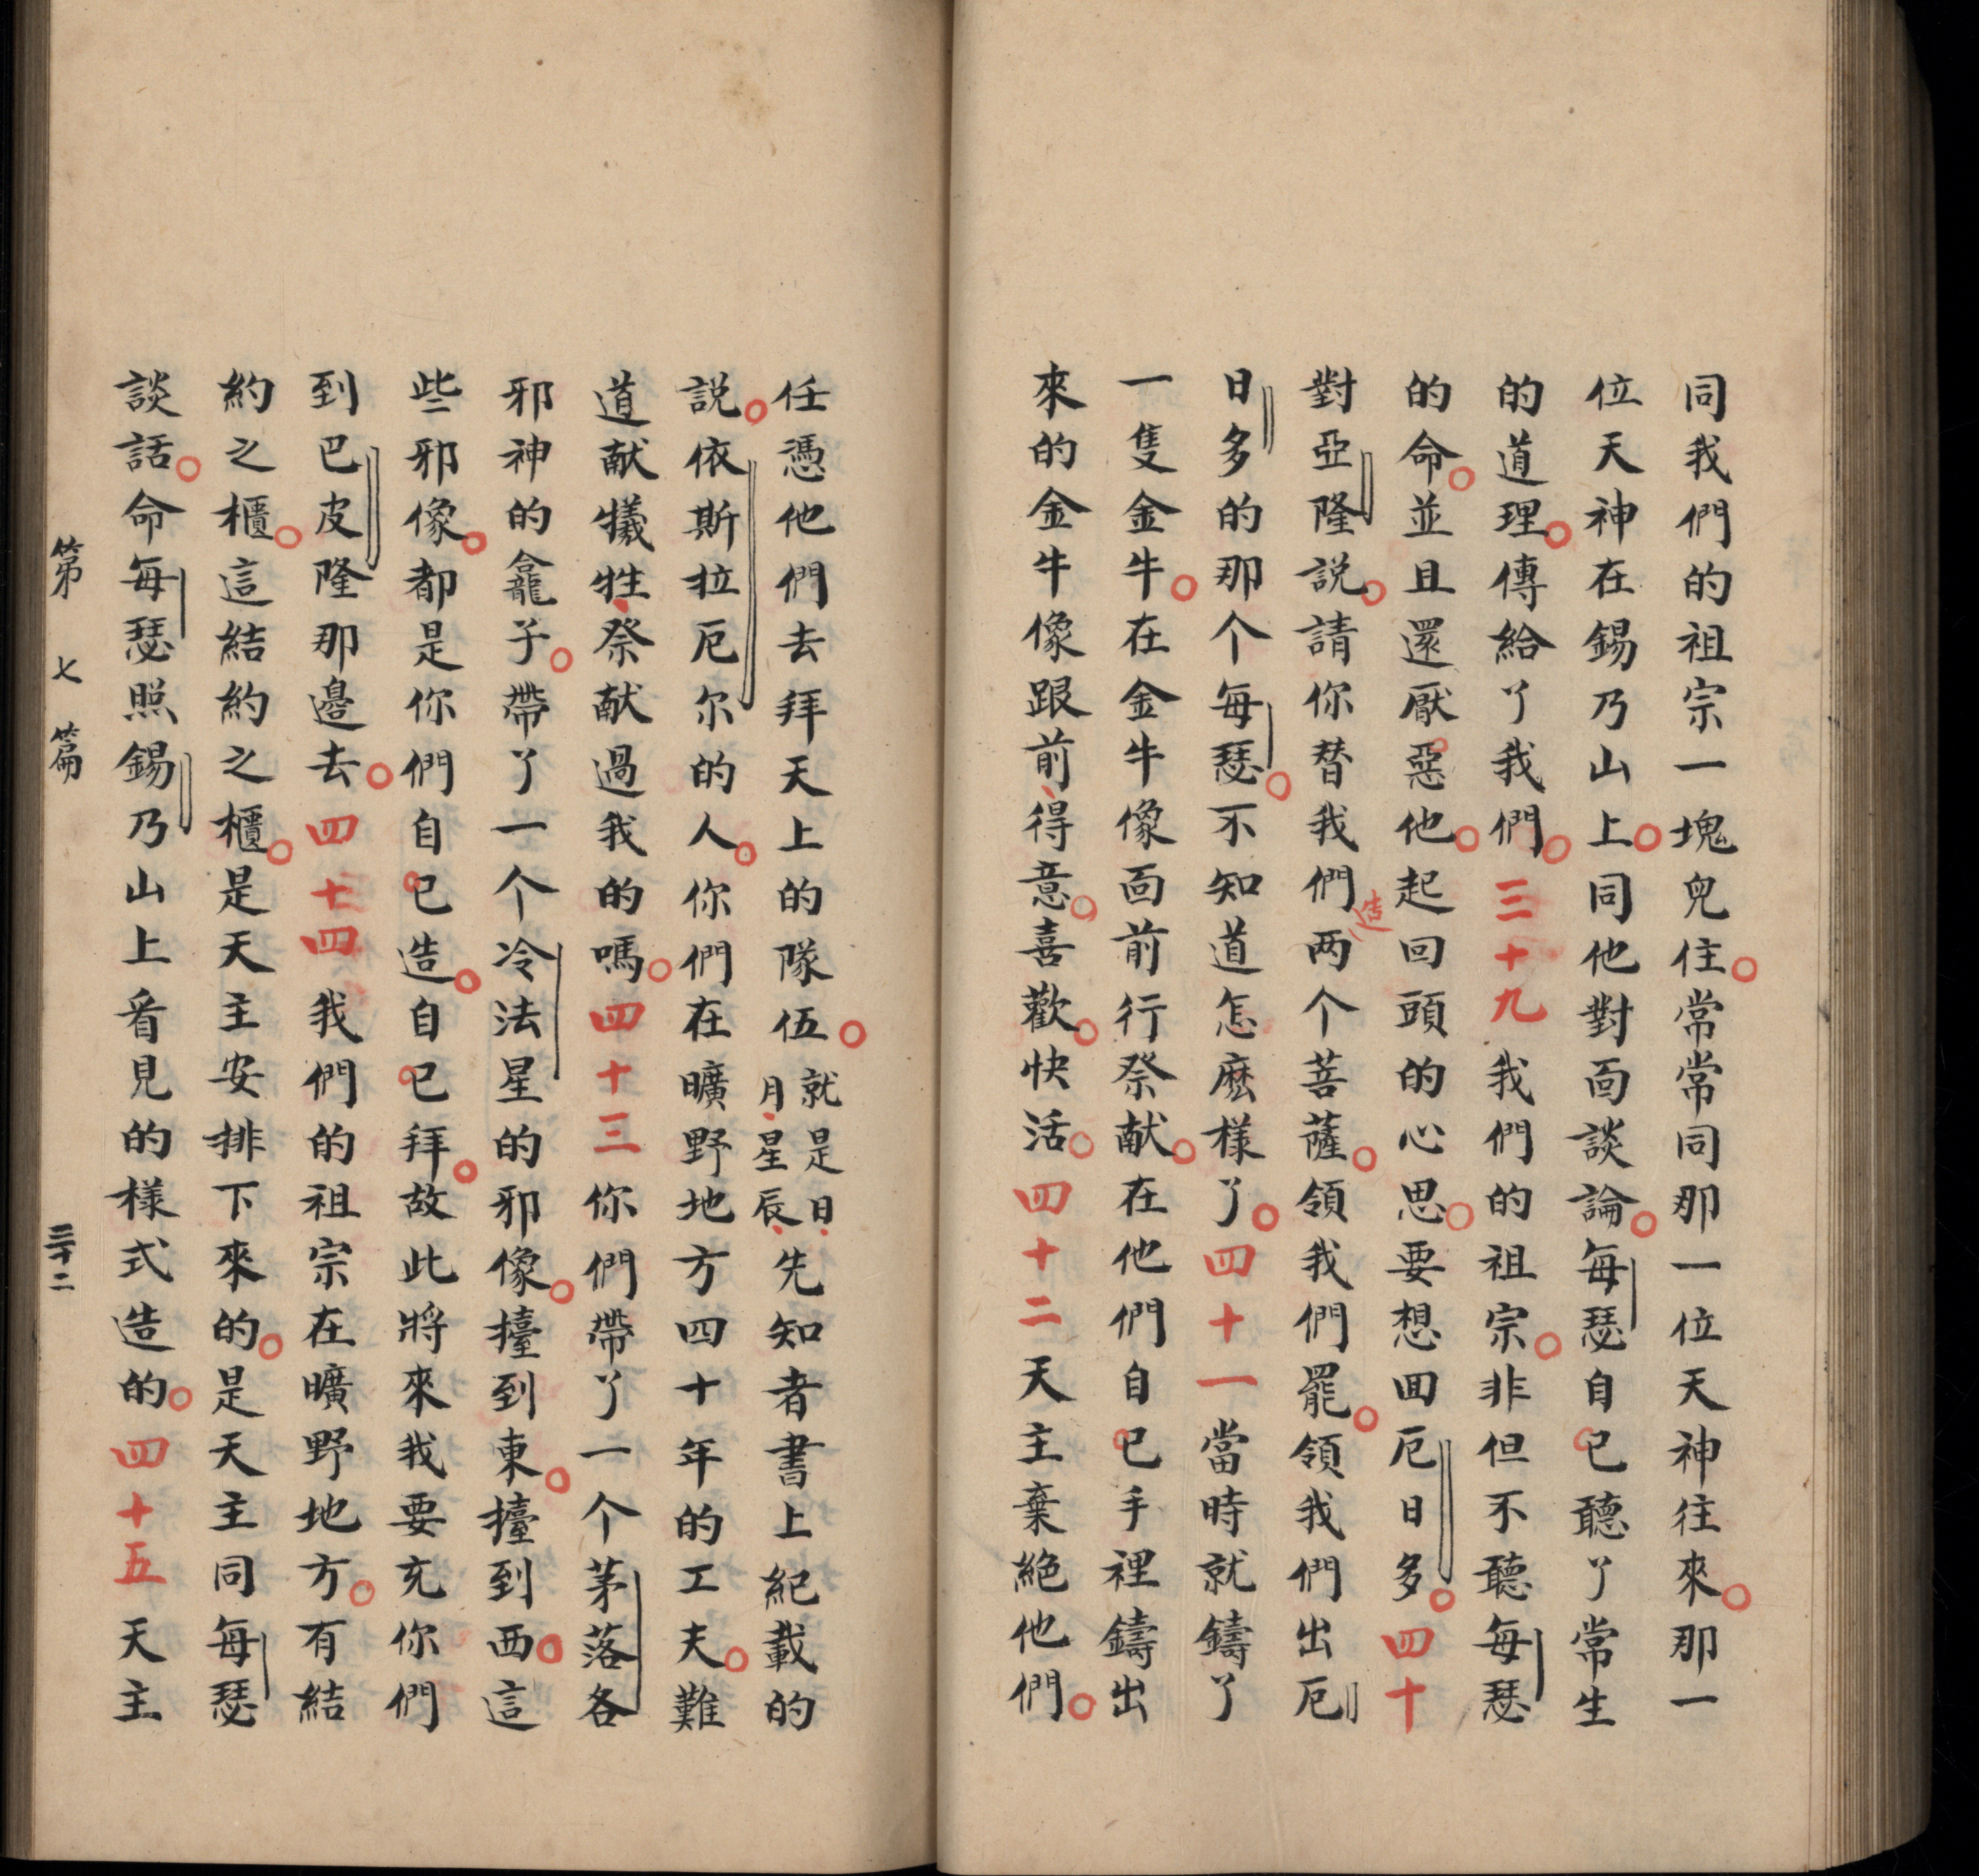 同我們的祖宗一塊兒住。常常同那一位天神往來。那一
位天神在錫乃山上。同他對面談論。每瑟自已聽了常生
的道理。傳給了我們。三十九我們的祖宗。非但不聽每瑟
的命。並且還厭惡他。起回頭的心思。要想回厄日多。四十
對亞隆説。請你替我們造两个菩薩。領我們罷。領我們出厄
日多的那个每瑟。不知道怎麽樣了。四十一當時就鑄了
一隻金牛。在金牛像面前行祭献。在他們自已手裡鑄出
來的金牛像跟前、得意。喜歡。快活。四十二天主棄絶他們。
任憑他們去拜天上的隊伍。就是日、月、星辰、先知者書上紀載的
説。依斯拉厄尔的人。你們在曠野地方四十年的工夫。難
道献犧牲、祭献過我的嗎。四十三你們帶了一个茅落各
邪神的龕子。帶了一个冷法星的邪像。擡到東。擡到西。這
些邪像。都是你們自已造。自已拜。故此將來我要充你們
到巴皮隆那邊去。四十四我們的祖宗在曠野地方。有結
約之櫃。這結約之櫃。是天主安排下來的。是天主同每瑟
談話。命每瑟照錫乃山上看見的樣式造的。四十五天主
第七篇 三十二